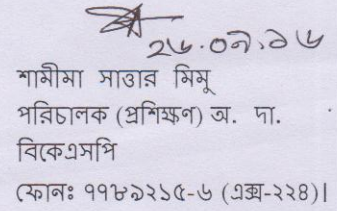 ২৬.০৭.১৬
শামীমা সাত্তার মিমু
পরিচালক (প্রশিক্ষণ) অ. দা.
বিকেএসপি
ফোনঃ ৭৭৮৯২১৫-৬ (এক্স-২২৪)।